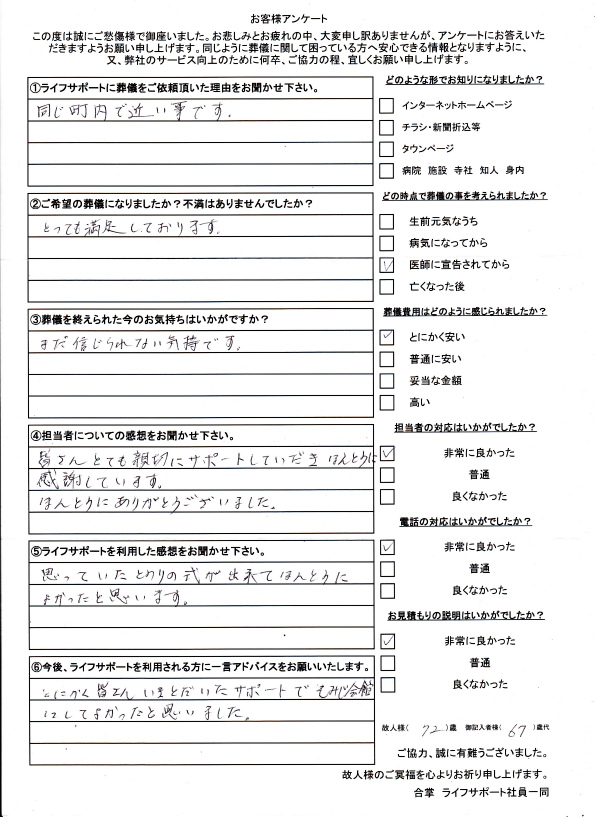 お客様アンケート
この度は誠にご愁傷様で御座いました。お悲しみとお疲れの中、大変申し訳ありませんが、アンケートにお答えいた
だきますようお願い申し上げます。同じように葬儀に関して困っている方へ安心できる情報となりますように、
又、弊社のサービス向上のために何卒、ご協力の程、宜しくお願い申し上げます。
①ライフサポートに葬儀をご依頼頂いた理由をお聞かせ下さい。
同じ町内で近い事です.
②ご希望の葬儀になりましたか？不満はありませんでしたか？
とっても満足しております.
③葬儀を終えられた今のお気持ちはいかがですか？
まだ信じられない気持です.
④担当者についての感想をお聞かせ下さい。
皆さんとても親切にサポートしていだき ほんとうに
感謝しています。
ほんとうにありがとうございました。
⑤ライフサポートを利用した感想をお聞かせ下さい。
思っていたとおりの式が出来てほんとうに
よかったと思います。
⑥今後、ライフサポートを利用される方に一言アドバイスをお願いいたします。
とにかく皆さん サポートで もみじ会館
にしてよかったと思いました。
どのような形でお知りになりましたか？
インターネットホームページ
チラシ・新聞折込等
タウンページ
病院 施設 寺社 知人 身内
どの時点で葬儀の事を考えられましたか？
生前元気なうち
病気になってから
医師に宣告されてから
亡くなった後
葬儀費用はどのように感じられましたか？
とにかく安い
普通に安い
妥当な金額
高い
担当者の対応はいかがでしたか？
非常に良かった
普通
良くなかった
電話の対応はいかがでしたか？
非常に良かった
普通
良くなかった
お見積もりの説明はいかがでしたか？
非常に良かった
普通
良くなかった
故人様（ 72 ）歳 御記入者様（ 67 ）歳代
ご協力、誠に有難うございました。
故人様のご冥福を心よりお祈り申し上げます。
合掌 ライフサポート社員一同